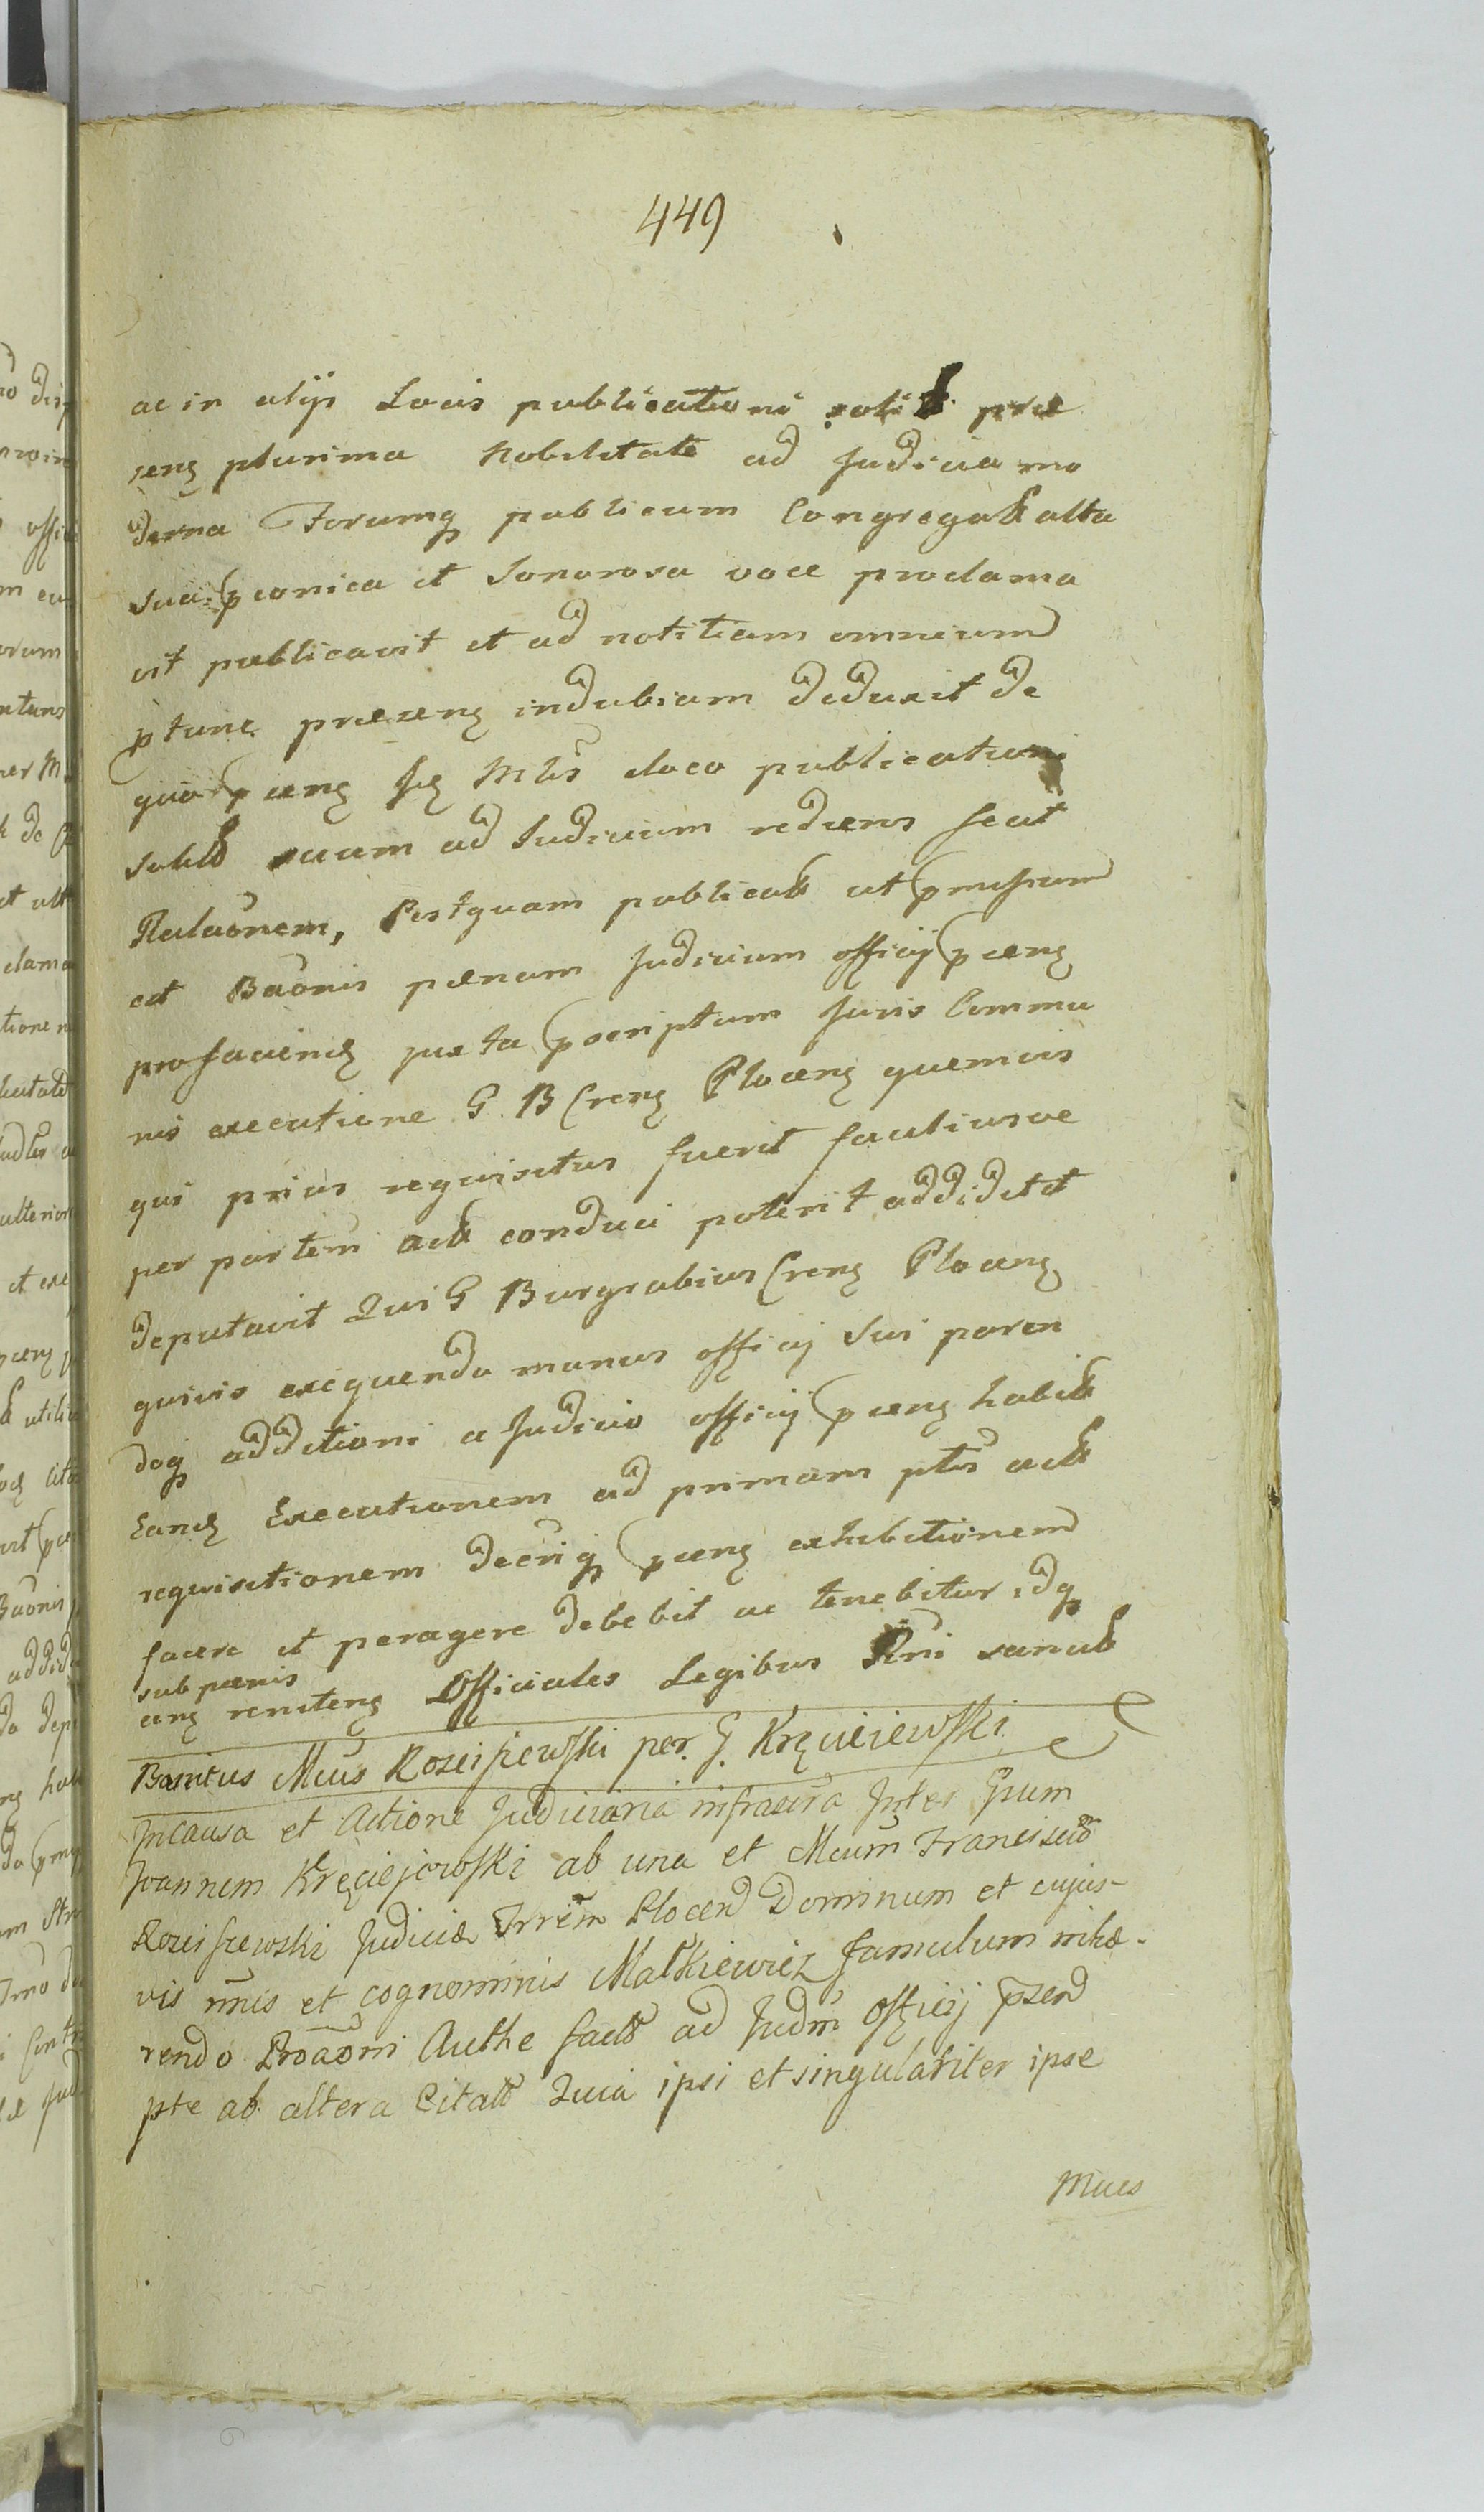 449
ac in alijs Locis publicationi solit prae
seng plurima Nobilitate ad Judicia mo
derna Forumq publicum Congregat alta
sua pconica et Sonorosa voce proclama
vit publicavit et ad notitiam omnium
ptunc praeseng indubiam deduxit de
quo pseng Jg Mlis eloco publicationi
solit suum ad Judicium rediens fecit
Relaõnem, Postquam publicat ut pmissum
est Baõnis paenam Judicium officij pseng
pro faciend juxta pscriptum Juris Commu
nis executione G. B Creng Ploceng quemvis
qui prius requisitus fuerit faciliusve
per partem act conduci poterit addidit et
deputavit Qui G Burgrabius Creng Ploceng
quivis exequendo munus officij Sui paren
doq additioni a Judicio officij pseng habit
Eand Executionem ad primam ptis act
requisitionem decriq pseng exhibitionem
facere et peragere debebit ac tenebitur idq
sub paenis
ceng reniteng Officiales Legibus Rni sancit
Banitus Mcus Rosciszewski per G. Kręciejewski
In causa et Actione Judiciaria infrascra Inter Gsum
Joannem Kręciejewski ab una et Mcum Franciscū
Rosciszewski Judicia Trrēm Plocen Dominum et cujus-
vis nñis et cognominis Małkiewicz famulum inhae-
rendo Proaõni Authe fact ad Judm officij pseñ
pte ab altera Citat Quia ipsi et singulariter ipse
Mcus